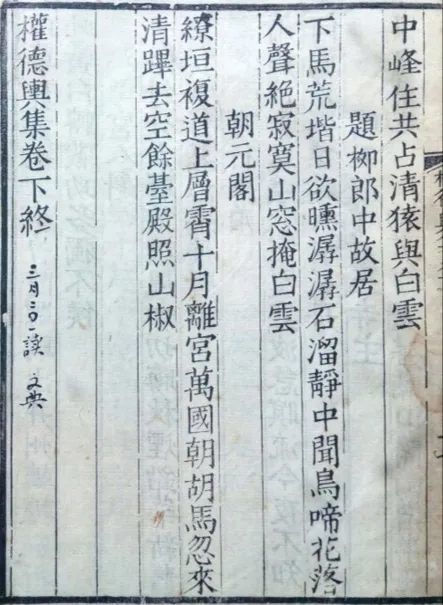 中峰住共占清猿與白雲
題栁郎中故居
下馬荒堦日欲曛潺潺石溜靜中聞鳥啼花落
人聲絕寂寞山窓掩白雲
朝元閣
繚垣複道上層霄十月離宮萬國朝胡馬忽來
清蹕去空餘臺殿照山椒
權德輿集卷下終
三月三日讀 文典